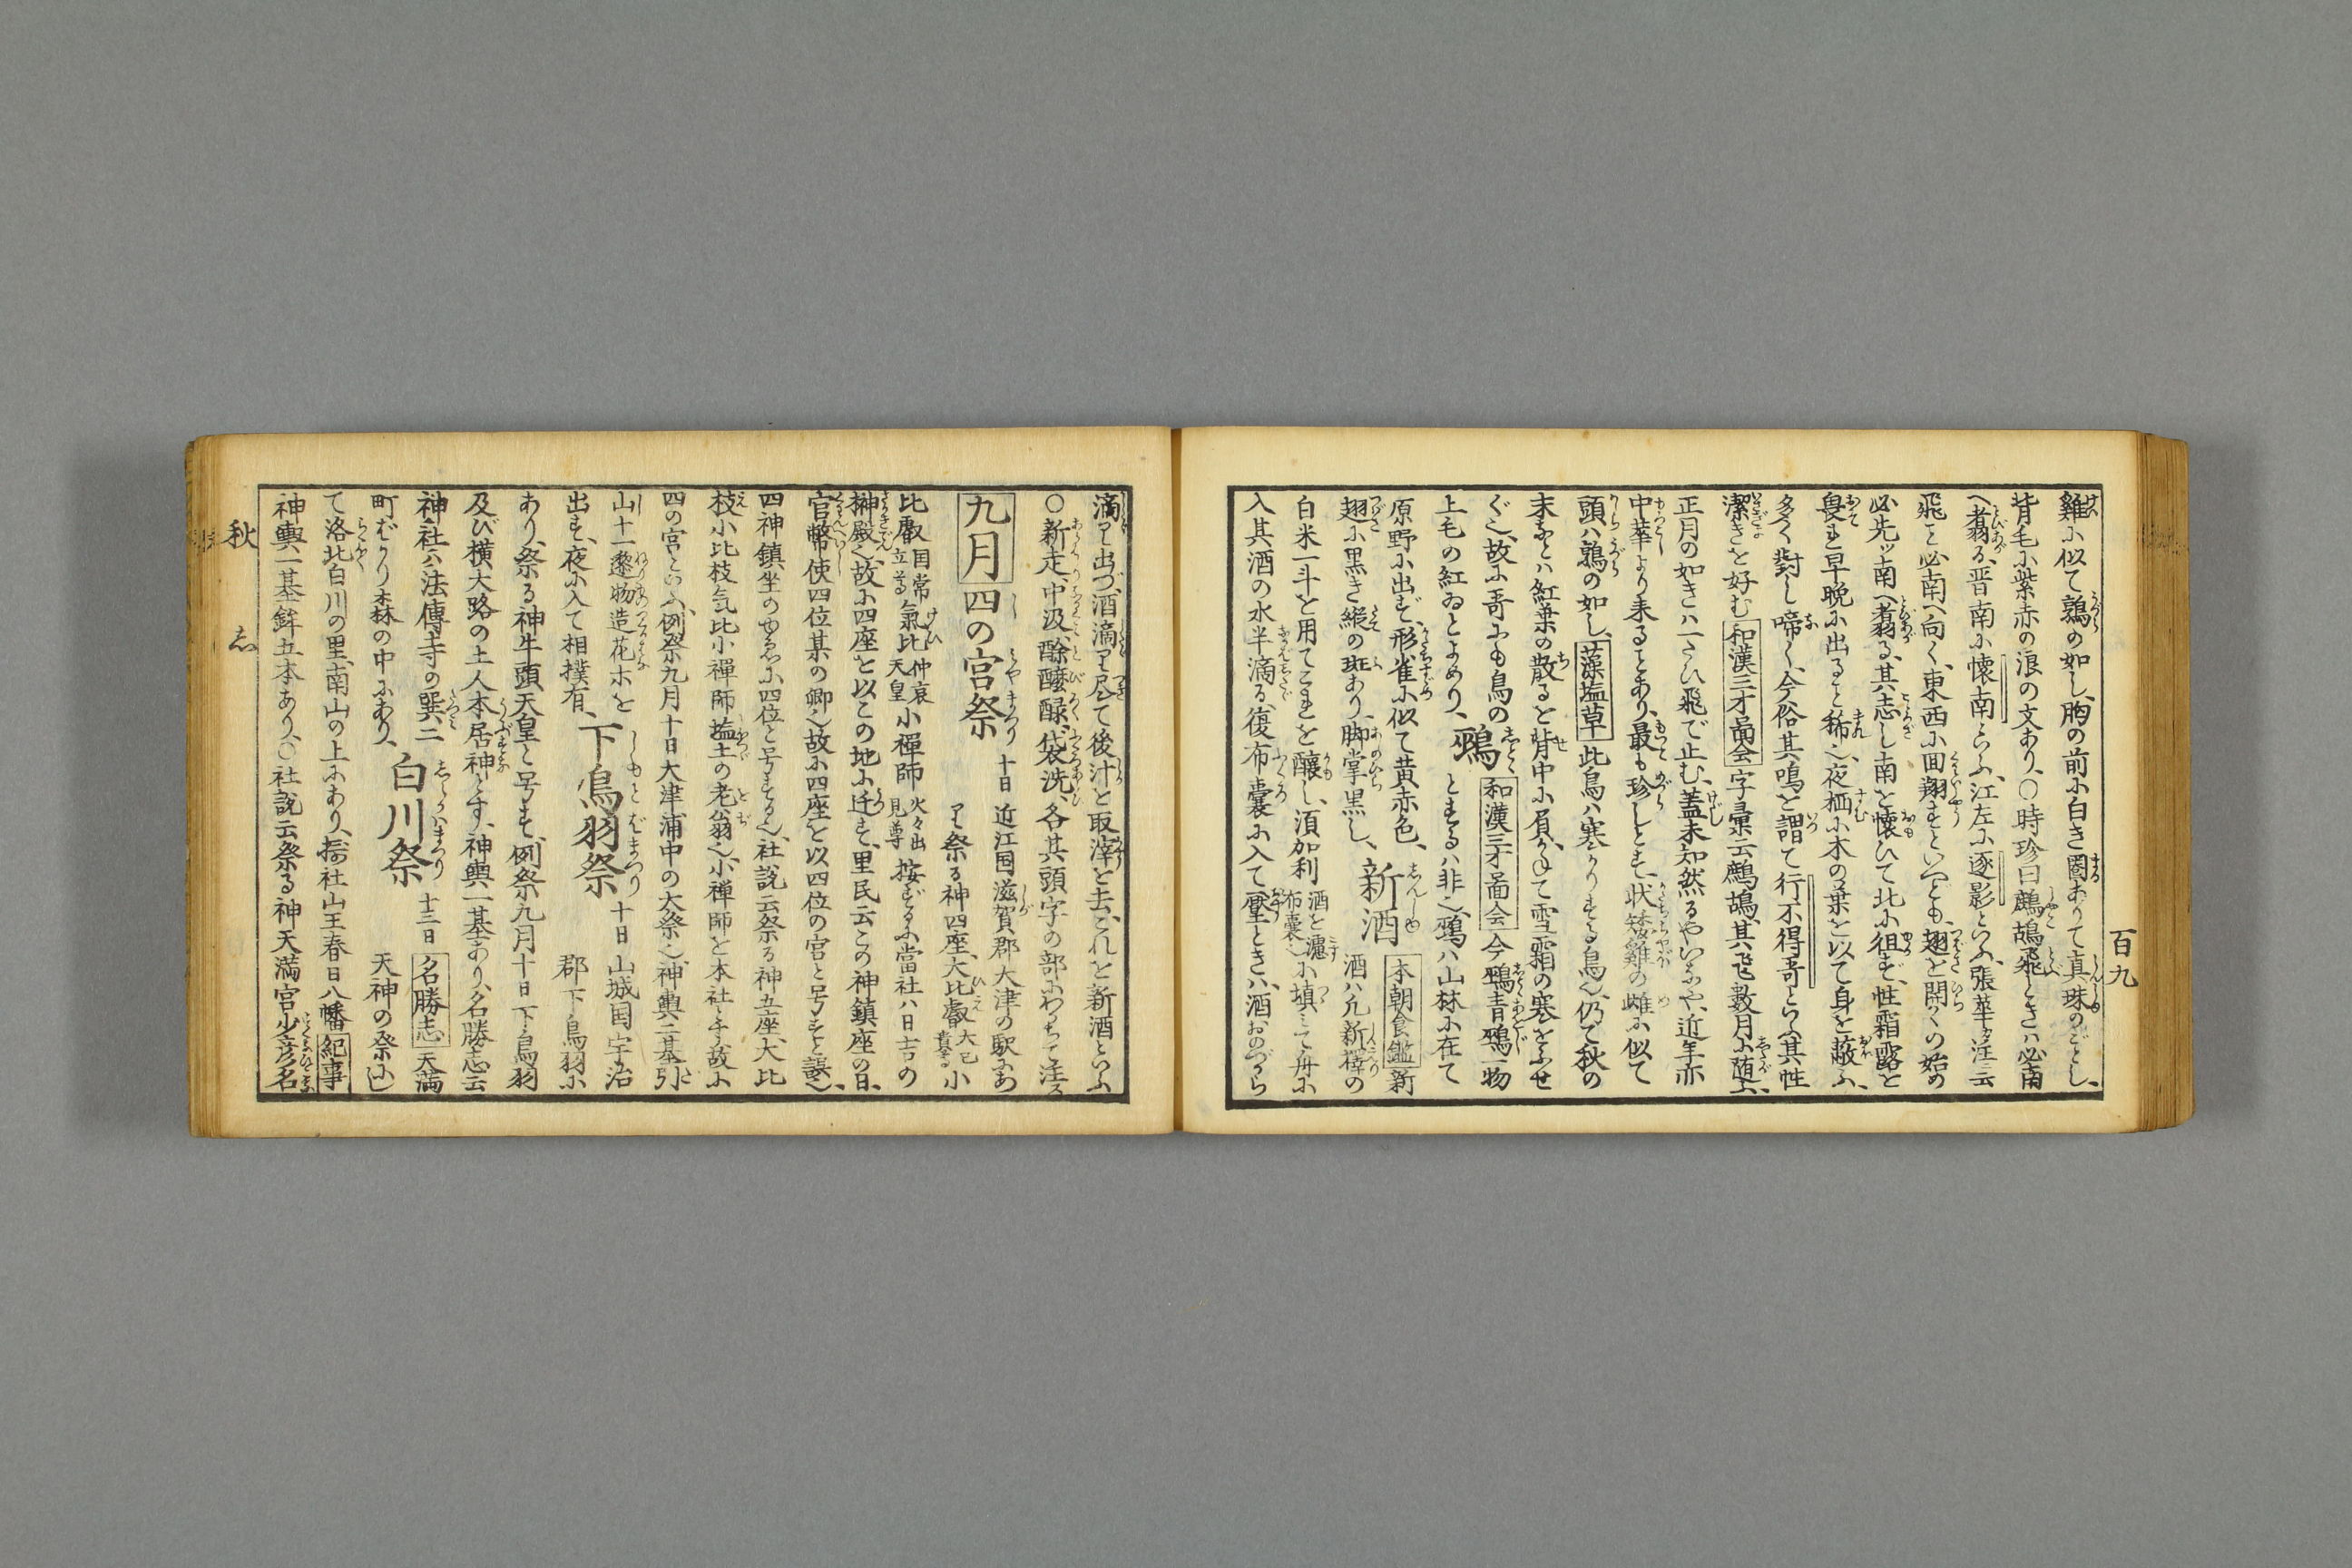 百九
雞に似て鶉の如し、胸の前に白き圏ありて真珠のごとし、
背毛に紫赤の浪の文あり、○時珍曰鷓鴣飛ときハ必南
へ翥る、晋南に懐南といふ、江左に逐影といふ、張華注云
飛こと必南へ向く、東西に回翔すといへども、翅を開くの始め
必先ッ南へ翥る、其志し南を懐ひて北に徂ず、性霜露を
畏れ早晩に出ること稀也、夜栖に木の葉を以て身を蔽ふ、
多く對し啼く、今俗其鳴を謂て行不得哥といふ其性
潔きを好む 和漢三才啚会 字彙云鷓鴣、其飛数月に随ふ、
正月の如きハ一たひ飛で止む、蓋未知然るやいなや、近年亦
中華より来ることあり、最も珍しとす、状矮雞の雌に似て
頭ハ鶉の如し、 藻塩草 此鳥ハ寒がりする鳥也、仍て秋の
末などハ紅葉の散るを背中に負かねて雪霜の寒をふせ
ぐ也、故に哥にも鳥の
上毛の紅ゐとよめり、
鵐 和漢三才啚会 今鵐青鵐一物
とするハ非也、鵐ハ山林に在て
原野に出ず、形雀に似て黄赤色、
翅に黒き縦の斑あり、脚掌黒し、
新酒 本朝食鑑 新
酒ハ凡新稲の
白米一斗を用てこれを醸し、須加利 酒を漉す布嚢也 に填て舟に
入其酒の水半滴る、復布嚢に入て壓ときハ、酒おのづから
滴り出づ、酒滴り尽て後汁を取滓を去、これを新酒といふ
○新走、中汲、醅、醱醁、袋洗、各其頭字の部にわかちて注す
九月 四の宮祭 十日 近江国滋賀郡大津の駅にあ
り祭る神四座、大比叡 大己貴尊 小
比叡 国常立尊 氣比 仲哀天皇 小禅師 火々出見尊 按ずるに當社ハ日吉の
榊殿也、故に四座を以この地に迁す、里民云この神鎮座の日、
官幣使四位某の卿也故に四座を以四位の宮と号すと誤也、
四神鎮坐のゆゑに四位と号する也、社説云祭る神五座、大比
枝小比枝気比小禅師塩土の老翁也、小禅師を本社とす故に
四の宮といふ、例祭九月十日大津浦中の大祭也、神輿二基引
山十一邌物造花ホを
出す、夜に入て相撲有、
下鳥羽祭 十日 山城国宇治
郡下鳥羽に
あり、祭る神牛頭天皇と号す、例祭九月十日下鳥羽
及び横大路の土人本居神とす、神輿一基あり、名勝志云
神社ハ法傳寺の巽二
町ばかり森の中にあり、
白川祭 十三日 名勝志 天満
天神の祭に
て洛北白川の里、南山の上にあり、摂社山王春日八幡 紀事
神輿一基鉾五本あり、○社説云祭る神天満宮少彦名
秋
し